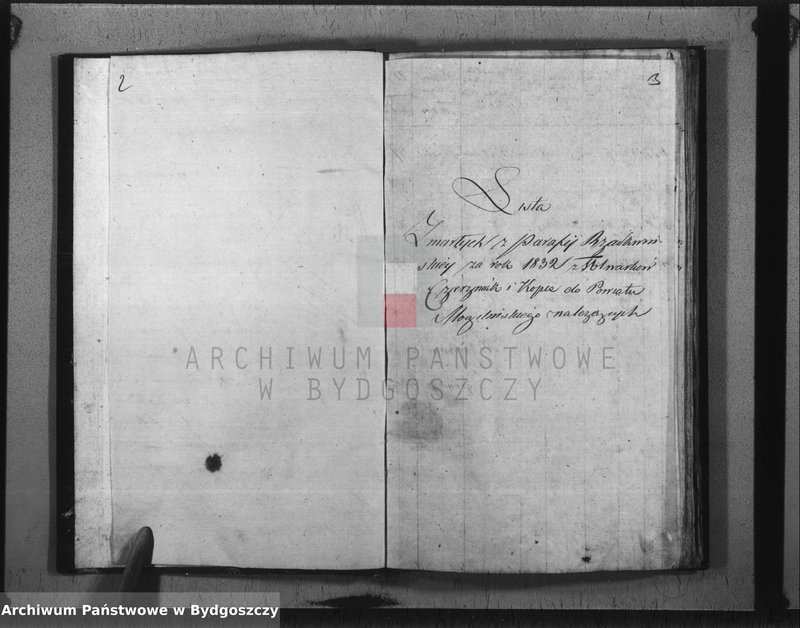 2
3
Lista
Zmarłych z Parafij Rządkwiń-
skiey za rok 1832 z Folwarków
Czerzniák i Kopce do Powiatu
Mogilnińskiego należących
ARCHIWUM PAŃSTWOWE
W BYDGOSZCZY
Archiwum Państwowe w Bydgoszczy